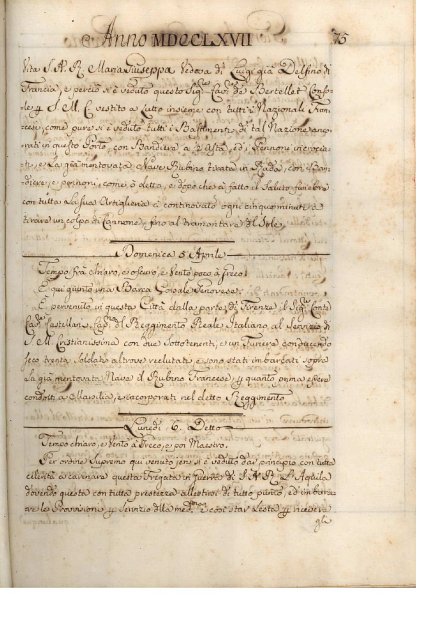 Anno MDCCLXVII 75
Vita S. A. R. Maria Giuseppa Vedova di Luigi già Delfino di
Francia, e perciò si è veduto questo Sig.re Cav.re de Bertellet Conso-
le p S. M. C. vestito a Lutto insieme con tutti i Nazionali Fran-
cesi, come pure si è veduto tutti i Bastimenti di tal Nazione anco-
rati in questo Porto, con Bandiera a ½ Asta, ed i Pennoni incrocia-
ti, e La già mentovata Nave Rubino tirata in Rada, con Ban-
diere, e pennoni, come è detto, e dopo che à fatto il Saluto funebre
con tutta La sua Artiglieria à continovato ogni cinque minuti à
tirare un colpo di Cannone fino al tramontare del Sole
Domenica 5 Aprile
Tempo frà chiaro, e oscuro, e Vento poco à greco
È qui giunto una Barca Corsale Genovese
È pervenuto in questa Città dalla parte di Firenze il Sig.re Conte
Cav.re Castellani, Cap.no del Reggimento Reale Italiano al Servizio di
S. M. Cristianissima con due Sottotenenti, e un Furiere conducendo
seco trenta Soldati altrove reclutati, e sono stati imbarcati sopra
La già mentovata Nave il Rubino Francese, p quanto prima essere
condotti a Marsilia, e incorporati nel detto Reggimento
Lunedì 6. Detto
Tempo chiaro, e Vento à Greco, e poi Maestro.
Per ordine Supremo qui venuto jeri si è veduto dar principio con tutta
celerità à carenare questa Fregata da guerra di S. A. R. L'Aquila
dovendo questa con tutta prestezza allestirsi di tutto punto, ed imbarca-
re le Provvisioni p servizio della med.ma, e così star Lesta p ricevere
gli